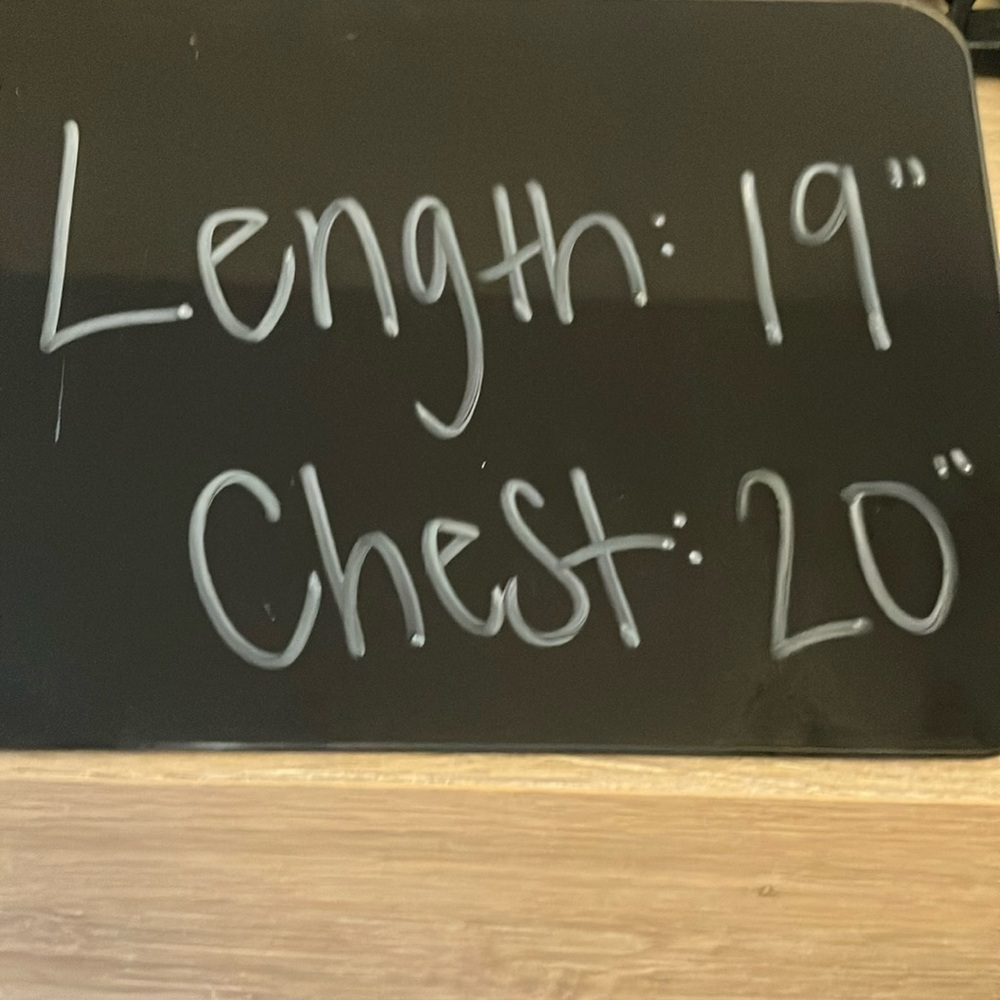 Length: 19"
Chest: 20"